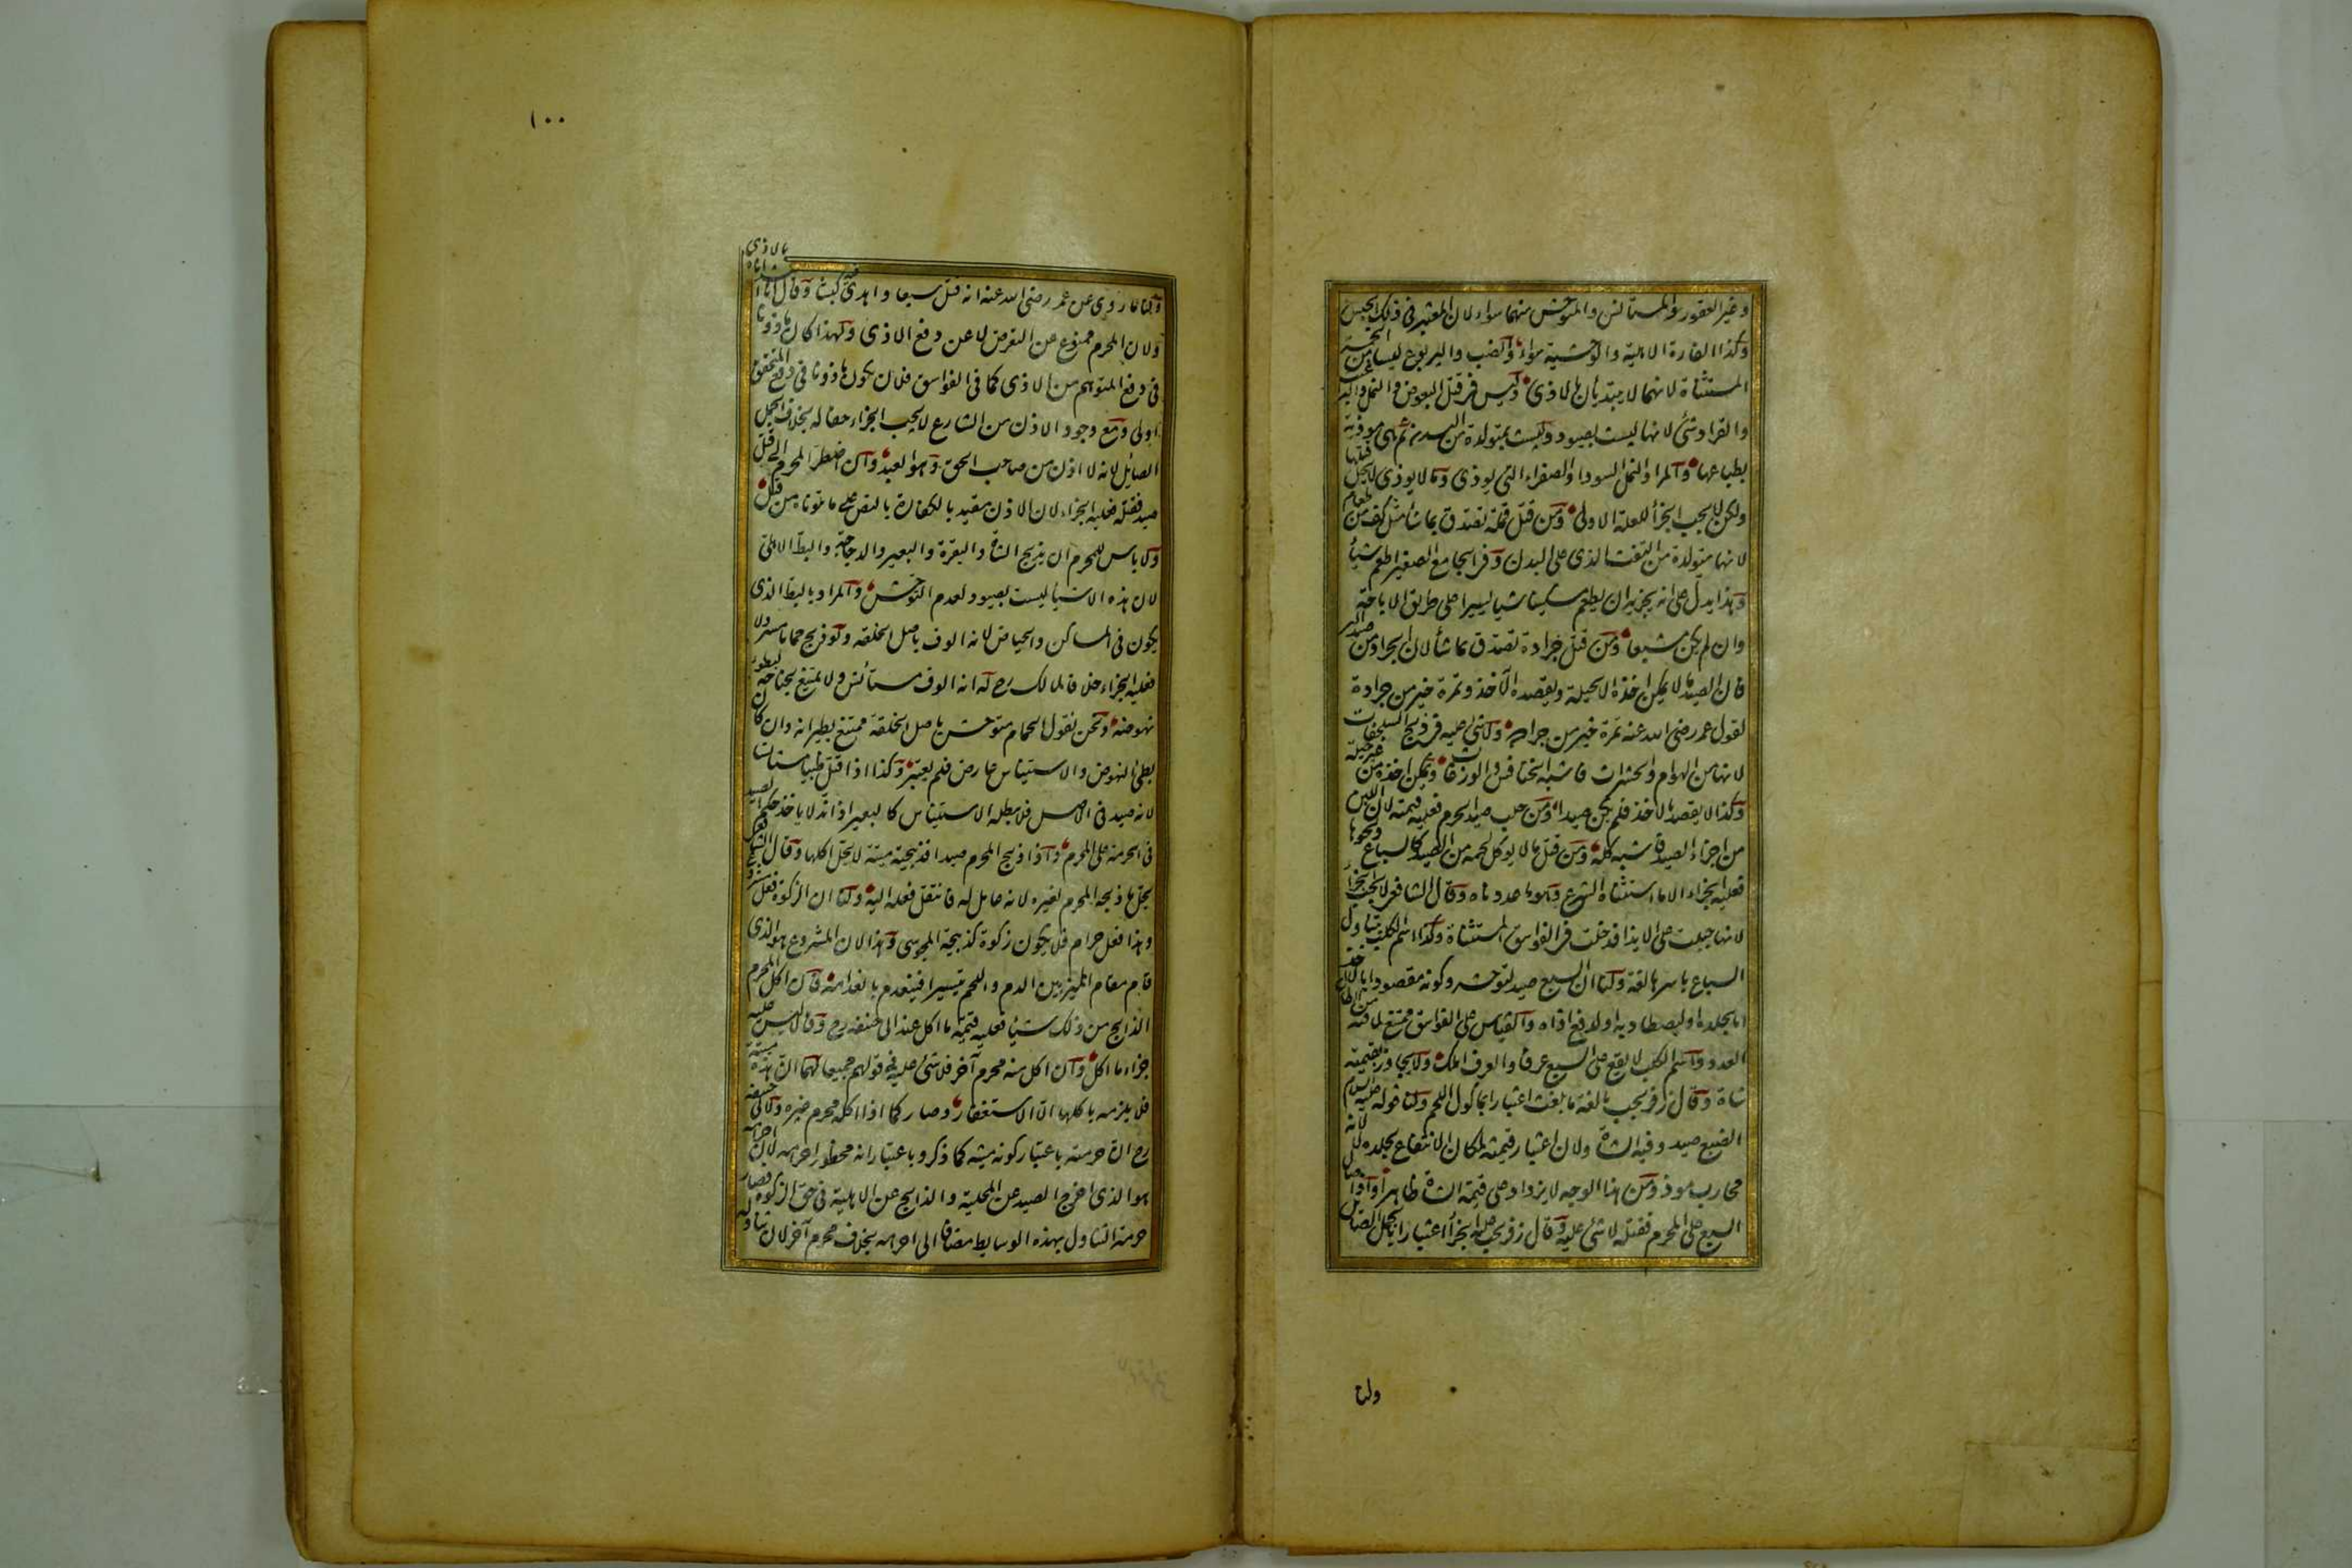 وغير العقور والمستأنس والمتوحش منهما سواء لان المعتبر فى ذلك الجنس
وكذا الفارة الاهلية والوحشية سواء والضب واليربوع ليسا من الخمس
المستثناة لانهما لا يبتديان بالاذى وليس فى قتل البعوض والنمل والبراغيث
والقراد شئ لانها ليست بصيود وليست بمتولدة من البدن ثم هى موذية
بطباعها والمراد النمل السودا والصفراء التى يوذى وما لا يوذى لا يحل قتلها
ولكن لا يجب الجزأ للعلة الاولى ومن قتل قملة تصدق بما شا مثل كف من طعام
لانها متولدة من التفث الذى على البدن وفى الجامع الصغير اطعم شيأ
وهذا يدل على انه يجزيه ان يطعم مسكينا شيا يسيرا على طريق الاباحة
وان لم يكن مشبعا ومن قتل جرادة تصدق بما شأ لان الجراد من صيد البر
فان الصيد ما لا يمكن اخذه الا بحيلة ويقصده الآخذ وتمرة خير من جرادة
لقول عمر رضى الله عنه تمرة خير من جرادة ولا شئ عليه فى ذبح السلحفات
لانها من الهوام والحشرات فاشبه الخنافس والوزغات ويمكن اخذه من غير حيلة
وكذا لا يقصد بالاخذ فلم يكن صيدا ومن حلب صيد الحرم فعليه قيمته لان اللبن
من اجزاء الصيد فاشبه كله ومن قتل ما لا يوكل لحمه من الصيد كالسباع ونحوها
فعليه الجزاء الا ما استثناه الشرع وهو ما عددناه وقال الشافعى لا يجب الجزأ
لانها جبلت على الايذا فدخلت فى الفواسق المستثناة وكذا اسم الكلب يتناول
السباع باسرها لغة ولنا ان السبع صيد لتوحشه وكونه مقصودا بالاخذ
اما لجلده او ليصطاد به او لدفع اذاه والقياس على الفواسق ممتنع لما فيه من ابطال
العدد واسم الكلب لا يقع على السبع عرفا والعرف املك ولا يجاوز بقيمته
شاة وقال زفر يجب بالغة ما بلغت اعتبارا بماكول اللحم ولنا قوله عليه السلام
الضبع صيد وفيه الشاة ولان اعتبار قيمته لمكان الانتفاع بجلده لا لانه
محارب موذ ومن هذا الوجه لا يزداد على قيمة الشاة ظاهرا واذا صال
السبع على المحرم فقتله لا شئ عليه وقال زفر يجب عليه الجزأ اعتبارا بالجمل الصايل
ولنا
١٠٠
ولنا ما روى عن عمر رضى الله عنه انه قتل سبعا واهدى كبشا وقال انا ابتداناه بالاذى
ولان المحرم ممنوع عن التعرض لا عن دفع الاذى ولهذا كان ماذونا
فى دفع المتوهم من الاذى كما فى الفواسق فلان يكون ماذونا فى دفع المتحقق
اولى ومع وجود الاذن من الشارع لا يجب الجزاء حقا له بخلاف الجمل
الصايل لانه لا اذن من صاحب الحق وهو العبد وان اضطر المحرم الى قتل
صيد فقتله فعليه الجزاء لان الاذن مقيد بالكفارة بالنص على ما تلوناه من قبل
ولا باس للمحرم ان يذبح الشاة والبقرة والبعير والدجاجة والبط الاهلى
لان هذه الاشيأ ليست بصيود لعدم التوحش والمراد بالبط الذى
يكون فى المساكن والحياض لانه الوف باصل الخلقة ولو ذبح حماما مسرولا
فعليه الجزاء خلافا لمالك رح له انه الوف مستأنس ولا يمتنع بجناحه لبطوء
نهوضه ونحن نقول الحمام متوحش باصل الخلقة ممتنع بطيرانه وان كان
بطئ النهوض والاستيناس عارض فلم يعتبر وكذا اذا قتل ظبيا مستانسا
لانه صيد فى الاصل فلا يبطله الاستيناس كالبعير اذا ند لا ياخذ حكم الصيد
فى الحرمة على المحرم واذا ذبح المحرم صيدا فذبيحته ميتة لا يحل اكلها وقال الشافعى
يحل ما ذبحه المحرم لغيره لانه عامل له فانتقل فعله اليه ولنا ان الزكوة فعل مشروع
وهذا فعل حرام فلا يكون زكوة كذبيحة المجوسى وهذا لان المشروع هو الذى
قام مقام الميز بين الدم واللحم تيسيرا فينعدم بانعدامه فان اكل المحرم
الذابح من ذلك شيأ فعليه قيمة ما اكل عند ابى حنيفه رح وقالا ليس عليه
جزاء ما اكل وان اكل منه محرم آخر فلا شئ عليه فى قولهم جميعا لهما ان هذه ميتة
فلا يلزمه باكلها الا الاستغفار وصار كما اذا اكله محرم غيره ولابى حنيفه
رح ان حرمته باعتبار كونه ميتة كما ذكر وباعتبار انه محظور احرامه لان احرامه
هو الذى اخرج الصيد عن المحلية والذابح عن الاهلية فى حق الزكوة فصار
حرمة التناول بهذه الوسايط مضافا الى احرامه بخلاف محرم آخر لان تناوله